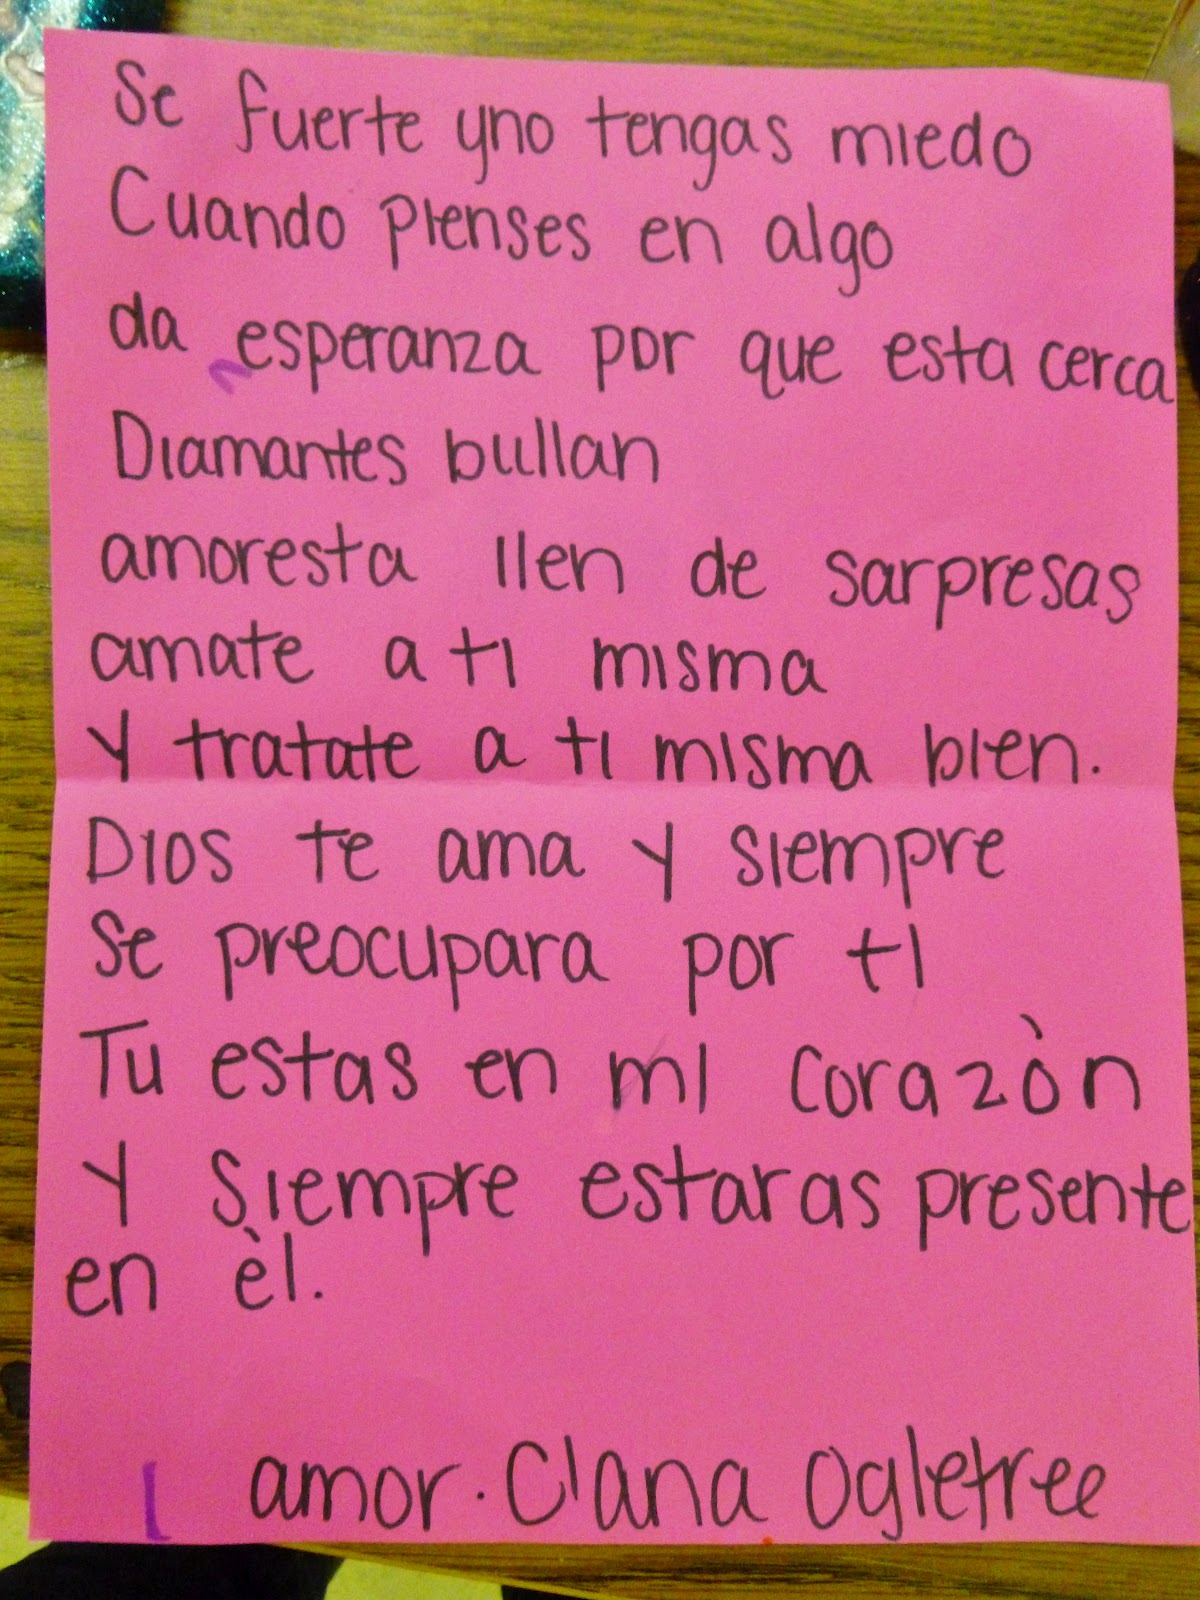 Se fuerte yno tengas miedo
Cuando pienses en algo
da esperanza por que esta cerca
Diamantes bullan
amoresta llen de sarpresas
amate a ti misma
y tratate a ti misma bien.
Dios te ama y siempre
se preocupara por ti
Tu estas en mi corazòn
y siempre estaras presente
en èl.
amor. Ciana Ogletree